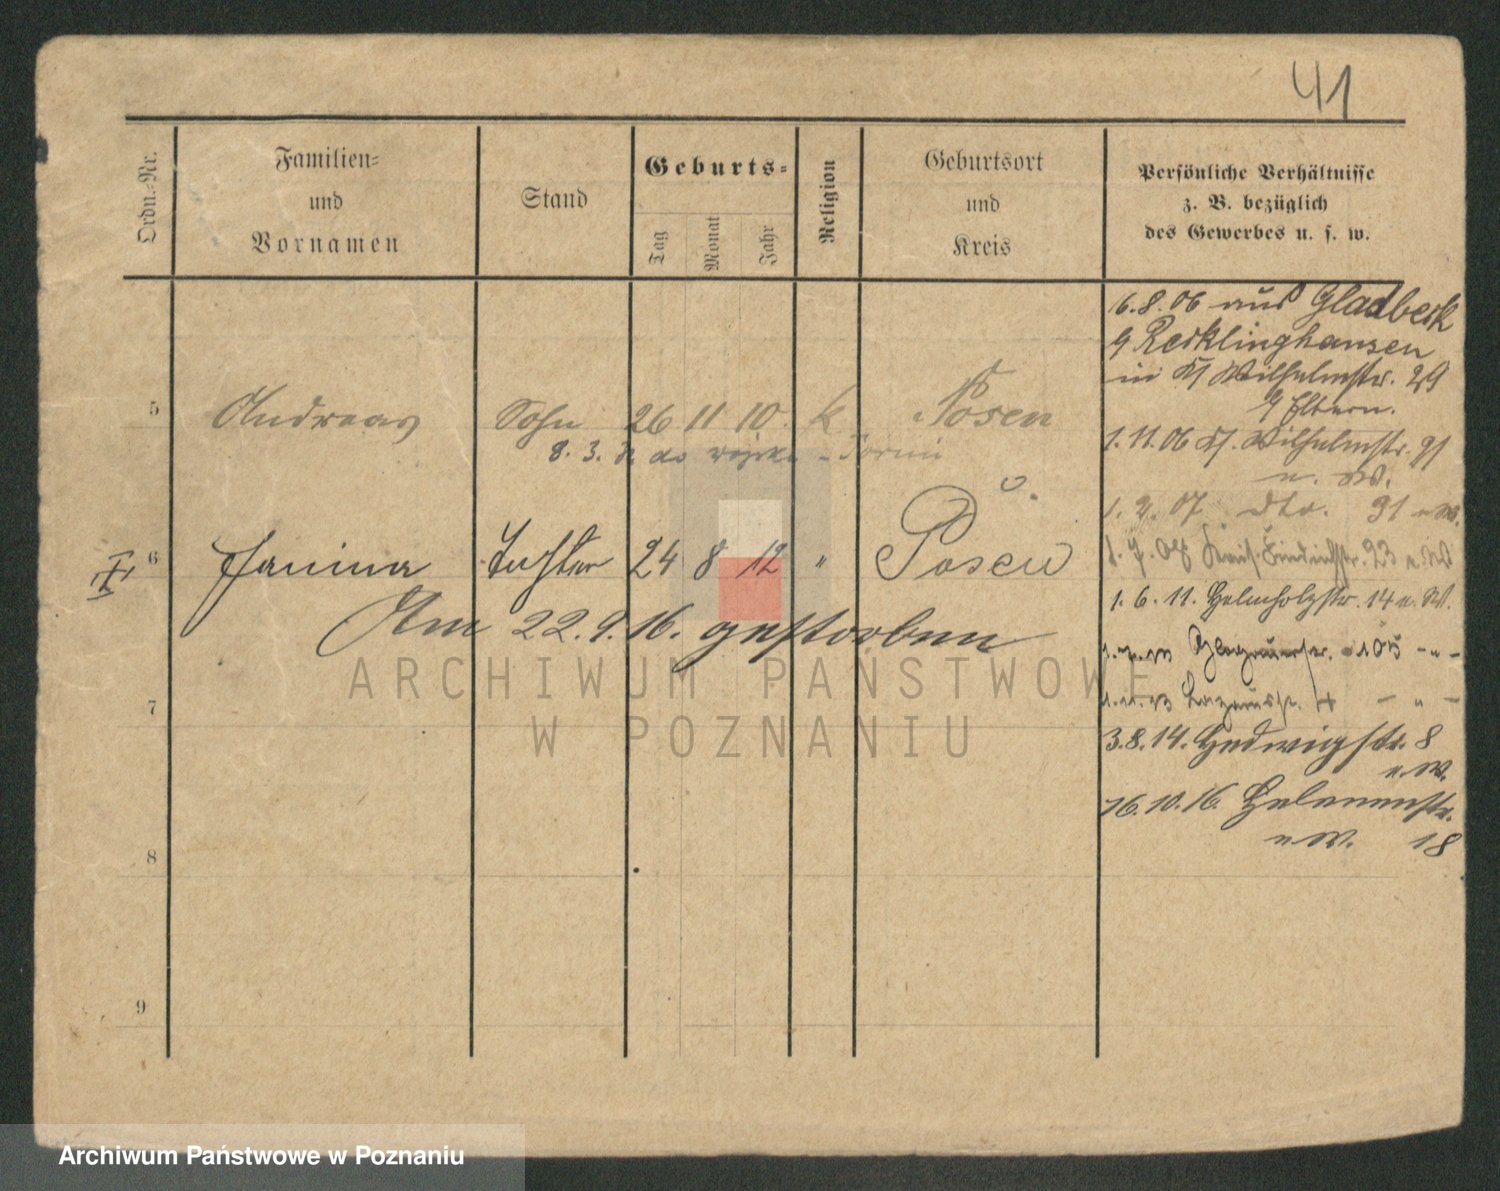 41
Ordn.-Nr.
Familien-
und
Vornamen
Stand
Geburts-
Tag
Monat
Jahr
Religion
Geburtsort
und
Kreis
Persönliche Verhältnisse
z. B. bezüglich
des Gewerbes u. s. w.
5 Andreas Sohn 26 11 10 k. Posen
8. 3. do wojska - Toruń
6 Janina Tochter 24 8 12 " Posen
Am 22.9.16. gestorben
7
8
9
6.8.06 aus Gladbeck
Recklinghausen
in Wilhelmstr. 29
Eltern.
1.11.06 Wilhelmstr. 91
u. W.
1. 2. 07 dto. 31 u. W.
1. 7. Kais. Friedrichstr. 23 u. W
1. 6. 11. Helmholzstr. 14 u. W.
Glogauerstr. 105 - " -
4 - " -
3.8.14. Hedwigstr. 8
u. W.
16.10.16. Helenenstr.
u. W. 18
ARCHIWUM PAŃSTWOWE
W POZNANIU
Archiwum Państwowe w Poznaniu